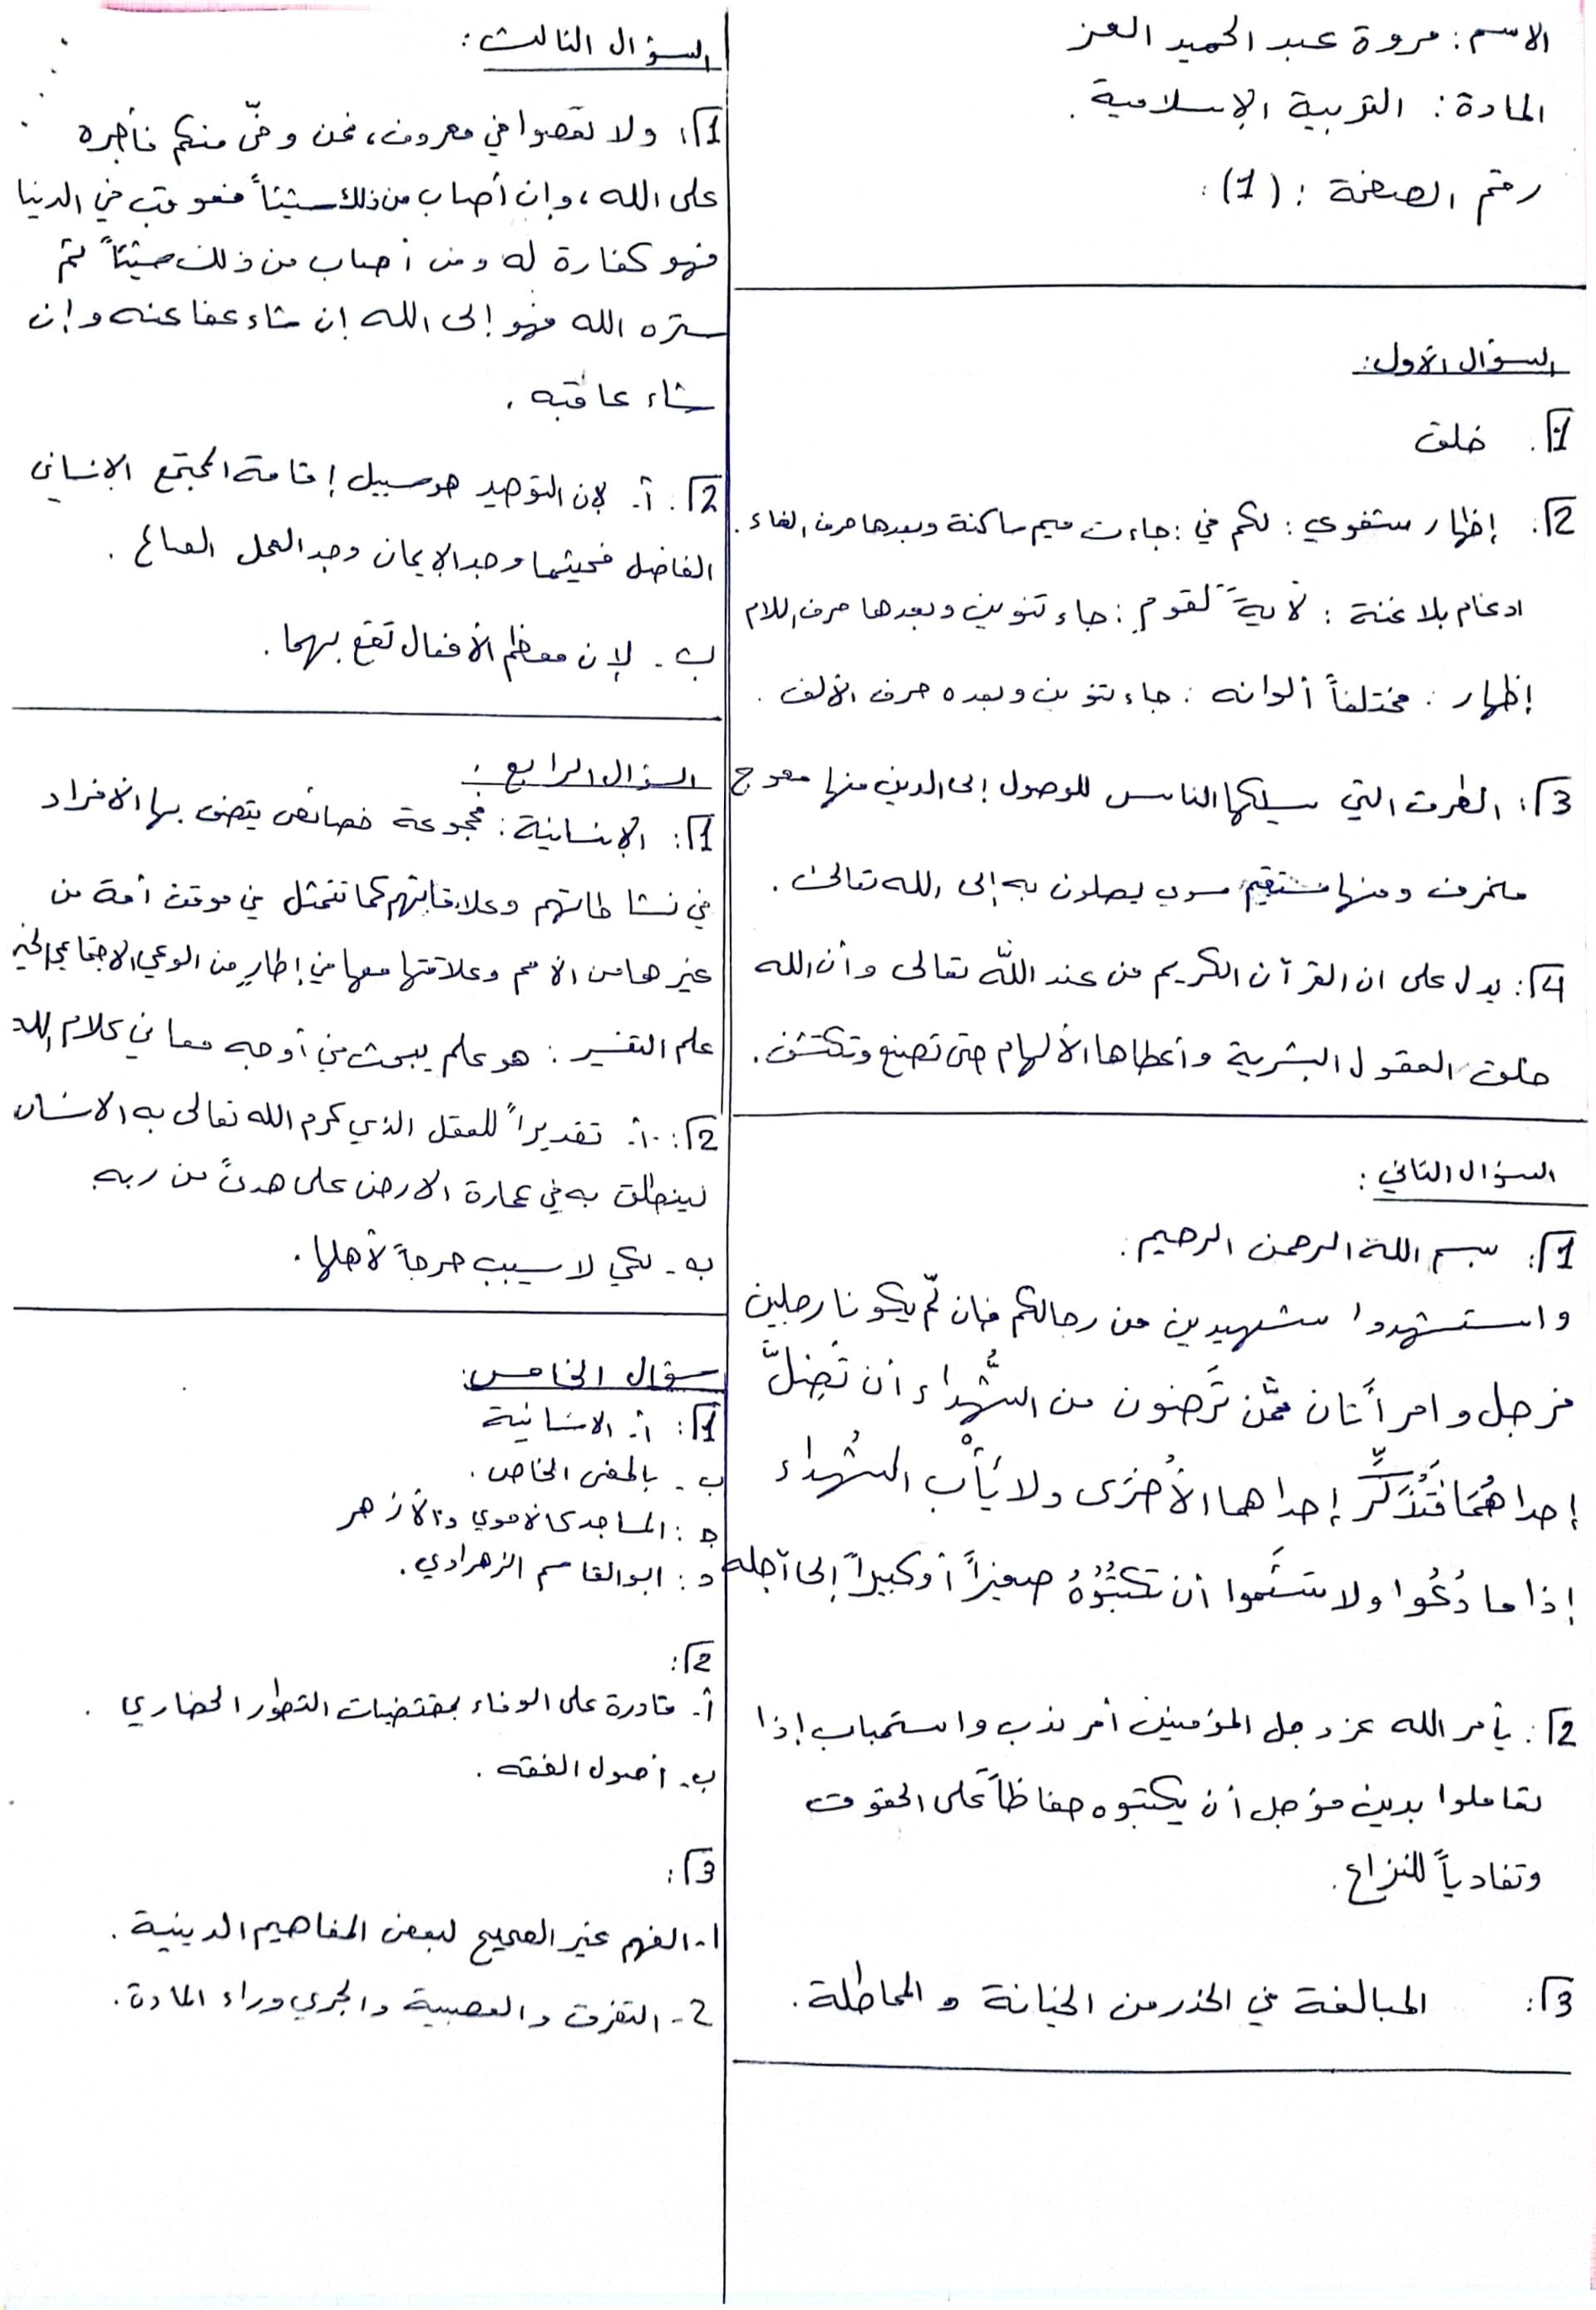 الاسم: مروة عبد الحميد العز
المادة: التربية الإسلامية.
رقم الصفحة: (1):
السؤال الأول:
1. خلق
2. إظهار شفوي: لكم في: جاءت ميم ساكنة وبعدها حرف الفاء.
ادغام بلا غنة: لآيةً لقومٍ: جاء تنوين وبعدها حرف اللام
إظهار: مختلفاً ألوانه: جاء تنوين وبعده حرف الألف.
3: الطرق التي يسلكها الناس للوصول إلى الدين منها معوج
منحرف ومنها مستقيم سوي يصلون به إلى الله تعالى.
4: يدل على ان القرآن الكريم من عند الله تعالى وأن الله
خلق العقول البشرية وأعطاها الألهام حتى تصنع وتكتشف.
السؤال الثاني:
1: بسم الله الرحمن الرحيم.
واستشهدوا شهيدين من رجالكم فإن لّم يكونا رجلين
فرجل وامرأتان ممَّن تَرضون من الشُّهداء أن تَضِلَّ
إحداهُمَا فَتُذَكِّر إحداهما الأُخرَى ولا يَأْب الشُهداء
إذا ما دُعُوا ولا تسَئَموا أن تكتُبُوُهُ صغيراً أو كبيراً إلى آجله
2: يأمر الله عز وجل المؤمنين أمر ندب واستحباب إذا
تعاملوا بدين مؤجل أن يكتبوه حفاظاً على الحقوق
وتفادياً للنزاع.
3: المبالغة في الحذر من الخيانة و المماطلة.
السؤال الثالث:
1: ولا تعصوا في معروف، فمن وفّى منكم فأجره
على الله، وإن أصاب من ذلك شيئاً فعوقب في الدنيا
فهو كفارة له ومن أصاب من ذلك شيئاً ثم
ستره الله فهو إلى الله إن شاء عفا عنه وإن
شاء عاقبه.
2. أ. لإن التوحيد هو سبيل إقامة المجتمع الانساني
الفاضل فحيثما وجد الإيمان وجد العمل الصالح.
ب. لإن معظم الأفعال تقع بهما.
السؤال الرابع:
1: الإنسانية: مجموعة خصائص يتصف بها الأفراد
في نشاطاتهم وعلاقاتهم كما تتمثل في موقف أمة من
غيرها من الأمم وعلاقتها معها في إطارٍ من الوعي الاجتماعي الخير
علم التفسير: هو علم يبحث في أوجه معاني كلام الله
2: أ. تقديراً للعقل الذي كرم الله تعالى به الانسان
لينطلق به في عمارة الارض على هدىً من ربه
ب. لكي لا يسبب حرجاً لأهلها.
سؤال الخامس:
1: أ. الانسانية
ب. بالمعنى الخاص.
ج: المساجد كالأموي والأزهر
د: ابو القاسم الزهراوي.
2:
أ. قادرة على الوفاء بمقتضيات التطور الحضاري.
ب. أصول الفقه.
3:
1- الفهم غير الصحيح لبعض المفاهيم الدينية.
2- التفرق والعصبية والجري وراء المادة.